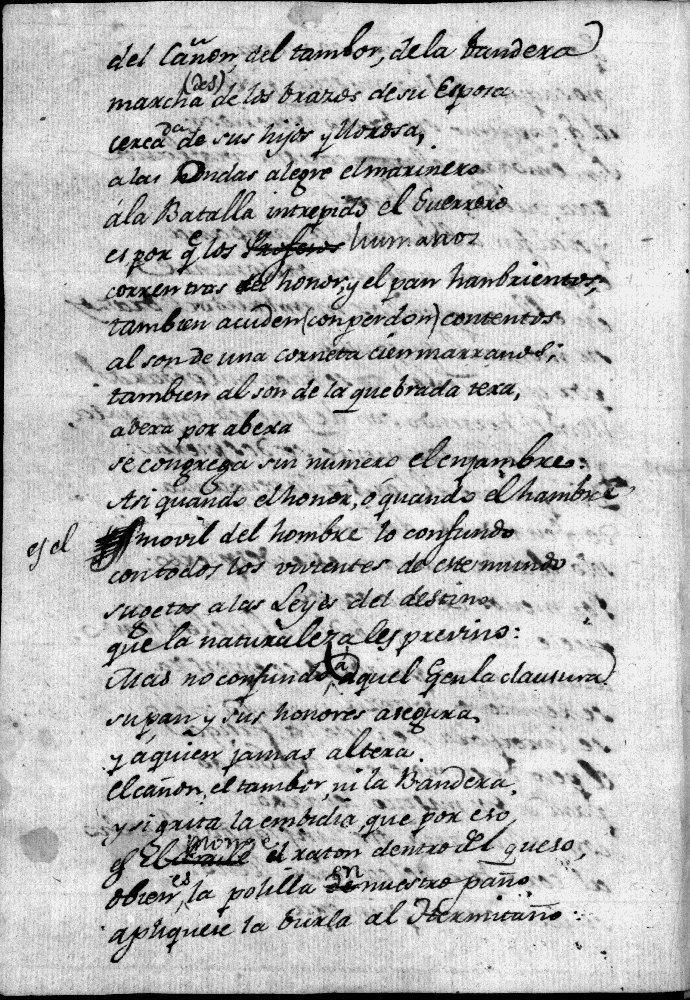 del Cañon, del tambor, de la bandera
(des)
marcha de los brazos de su Esposa
cercada de sus hijos y llorosa,
a las hondas alegre el marinero
á la Batalla intrepido el Guerrero
es por qe los humanos
corren tras del honor, y el pan hanbrientos,
tambien acuden (con perdon) contentos
al son de una corneta cien marranos;
tambien al son de la quebrada texa,
abexa por abexa
se congrega sin numero el enjambre:
Asi quando el honor, ó quando el hambre
es el movil del hombre lo confundo
con todos los vivientes de este mundo
sugetos a las Leyes del destino
que la naturaleza les previno:
Mas no confundo á aquel qe en la clausura
su pan y sus honores asegura,
y á quien jamas altera
el cañon, el tambor, ni la Bandera,
y si grita la embidia, que por eso
es El monge el raton dentro del queso,
o bien es la polilla en nuestro paño
apliquese la burla al Hermitaño.